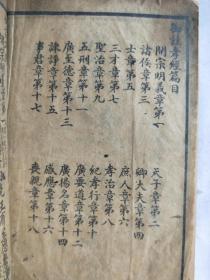 孝經篇目
開宗明義章第一　天子章第二
諸侯章第三　卿大夫章第四
士章第五　庶人章第六
三才章第七　孝治章第八
聖治章第九　紀孝行章第十
五刑章第十一　廣要道章第十二
廣至德章第十三　廣揚名章第十四
諫諍章第十五　感應章第十六
事君章第十七　喪親章第十八